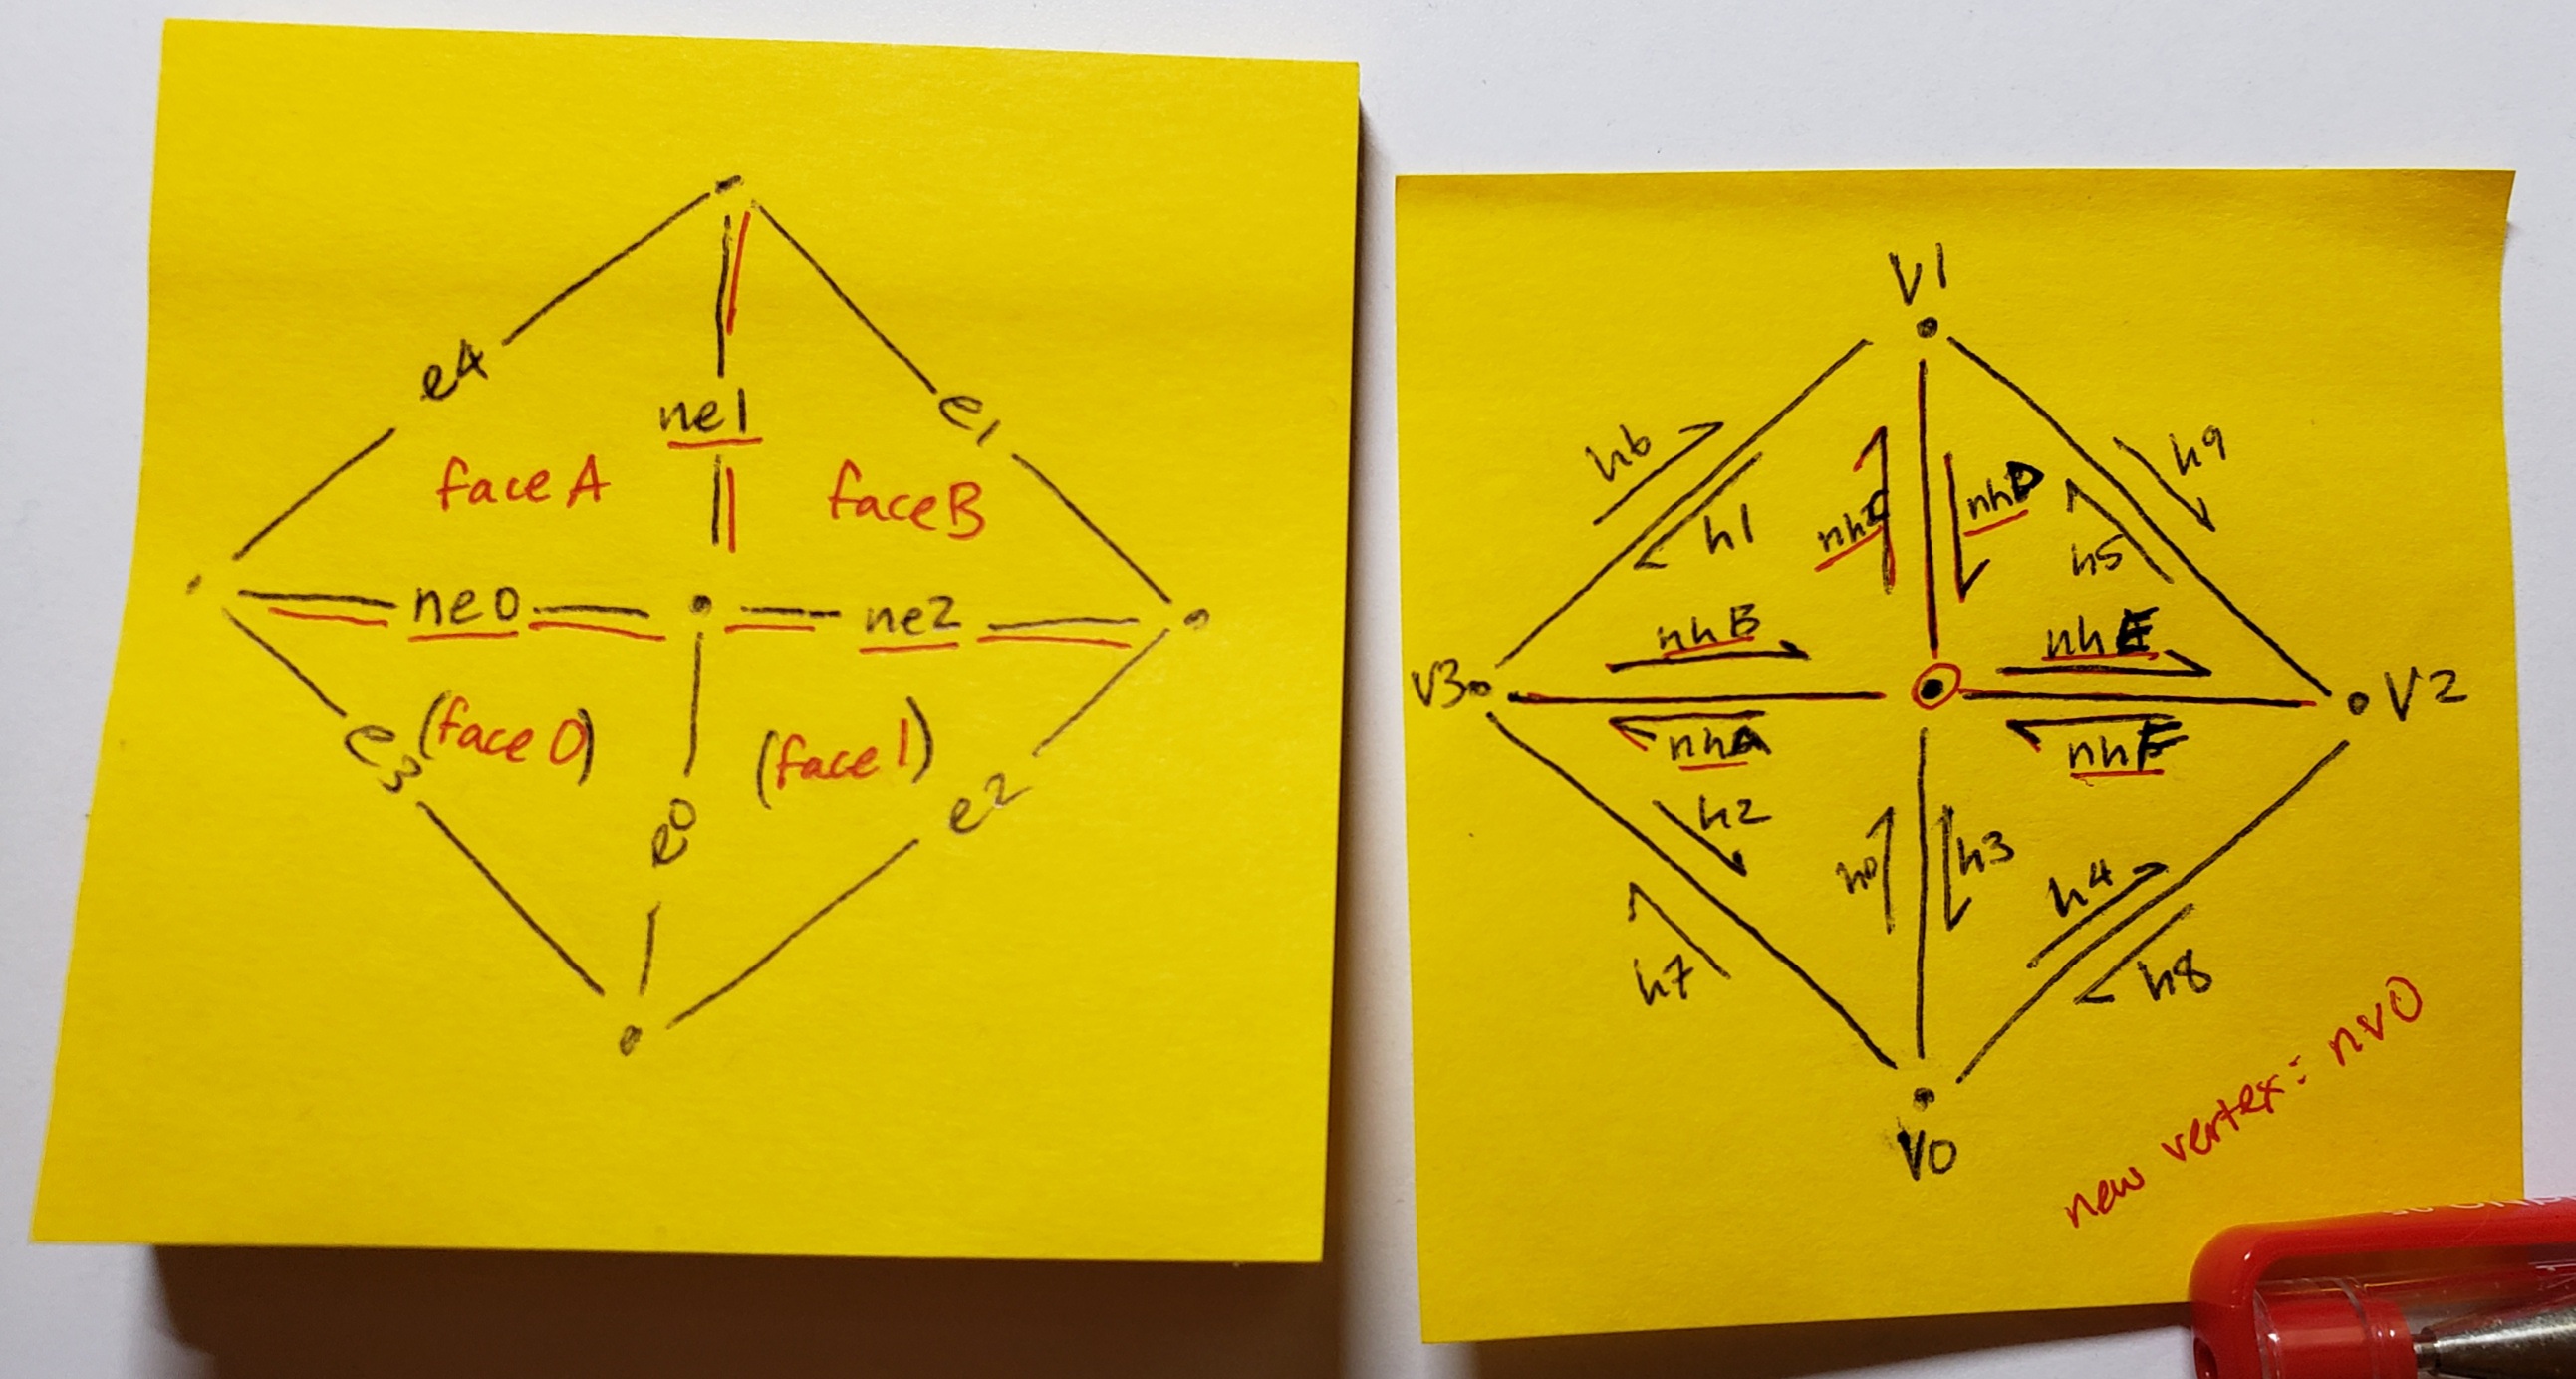 e4
ne1
e1
face A
face B
ne0
ne2
e3
(face 0)
(face 1)
e0
e2
V1
h6
h1
nhC
nhD
h9
h5
nhB
nhE
V3
V2
nhA
nhF
h2
h0
h3
h4
h7
h8
V0
new vertex: nv0